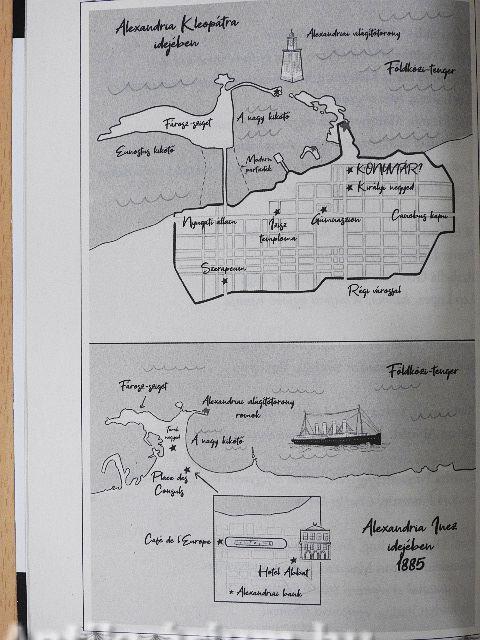 Alexandria Kleopátra
idejében
Alexandriai világítótorony
Földközi-tenger
Fárosz-sziget
A nagy kikötő
Eunostus kikötő
Modern
partvidék
KÖNYVTÁR?
Királyi negyed
Nyugati állam
Izisz
temploma
Gümnaszion
Canobus kapu
Szerapeum
Régi városfal
Földközi-tenger
Fárosz-sziget
Alexandriai világítótorony
romok
Török
negyed
A nagy kikötő
Place des
Consuls
Café de l'Europe
Hotel Abbat
Alexandriai bank
Alexandria Inez
idejében
1885